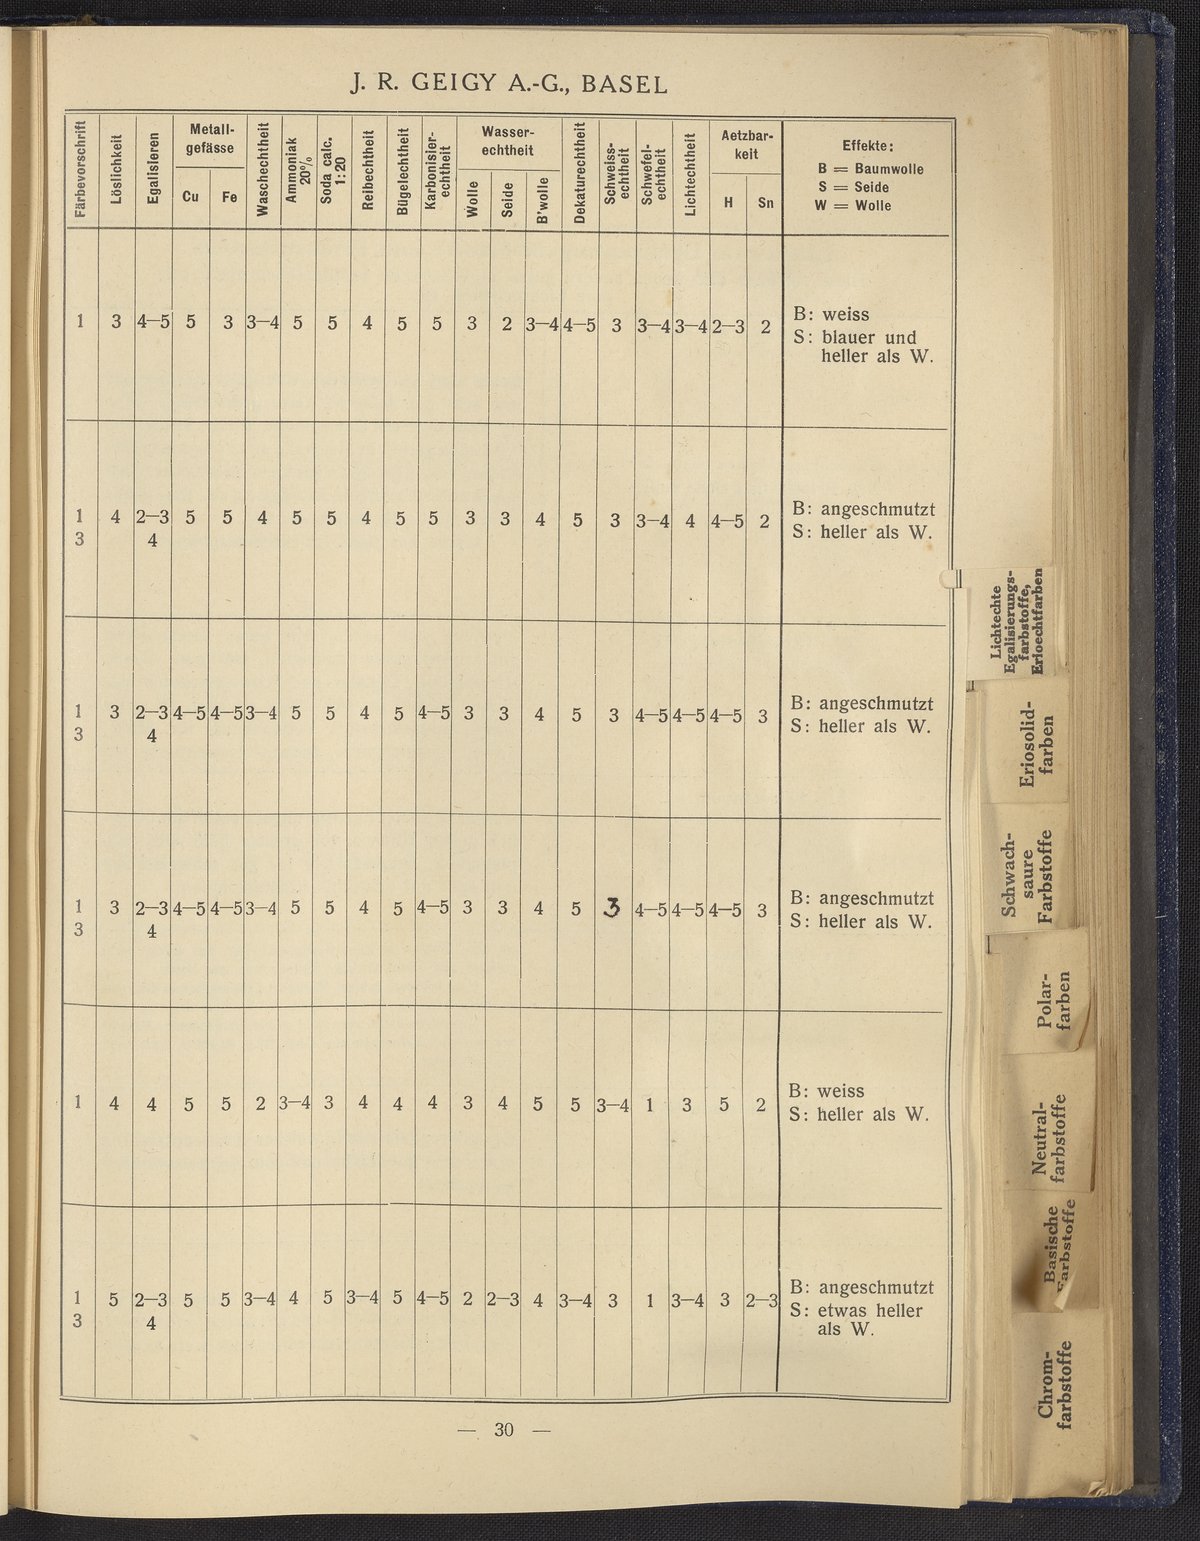 J. R. GEIGY A.-G., BASEL
Färbevorschrift | Löslichkeit | Egalisieren | Metall-gefässe Cu | Fe | Waschechtheit | Ammoniak 20% | Soda calc. 1:20 | Reibechtheit | Bügelechtheit | Karbonisier-echtheit | Wasser-echtheit Wolle | Seide | B'wolle | Dekaturechtheit | Schweiss-echtheit | Schwefel-echtheit | Lichtechtheit | Aetzbar-keit H | Sn | Effekte:
B = Baumwolle
S = Seide
W = Wolle
1 3 4—5 5 3 3—4 5 5 4 5 5 3 2 3—4 4—5 3 3—4 3—4 2—3 2
B: weiss
S: blauer und
heller als W.
1 4 2—3 5 5 4 5 5 4 5 5 3 3 4 5 3 3—4 4 4—5 2
3 4
B: angeschmutzt
S: heller als W.
1 3 2—3 4—5 4—5 3—4 5 5 4 5 4—5 3 3 4 5 3 4—5 4—5 4—5 3
3 4
B: angeschmutzt
S: heller als W.
1 3 2—3 4—5 4—5 3—4 5 5 4 5 4—5 3 3 4 5 3 4—5 4—5 4—5 3
3 4
B: angeschmutzt
S: heller als W.
1 4 4 5 5 2 3—4 3 4 4 4 3 4 5 5 3—4 1 3 5 2
B: weiss
S: heller als W.
1 5 2—3 5 5 3—4 4 5 3—4 5 4—5 2 2—3 4 3—4 3 1 3—4 3 2—3
3 4
B: angeschmutzt
S: etwas heller
als W.
— 30 —
Lichtechte
Egalisierungs-
farbstoffe,
Erioechtfarben
Eriosolid-
farben
Schwach-
saure
Farbstoffe
Polar-
farben
Neutral-
farbstoffe
Basische
Farbstoffe
Chrom-
farbstoffe